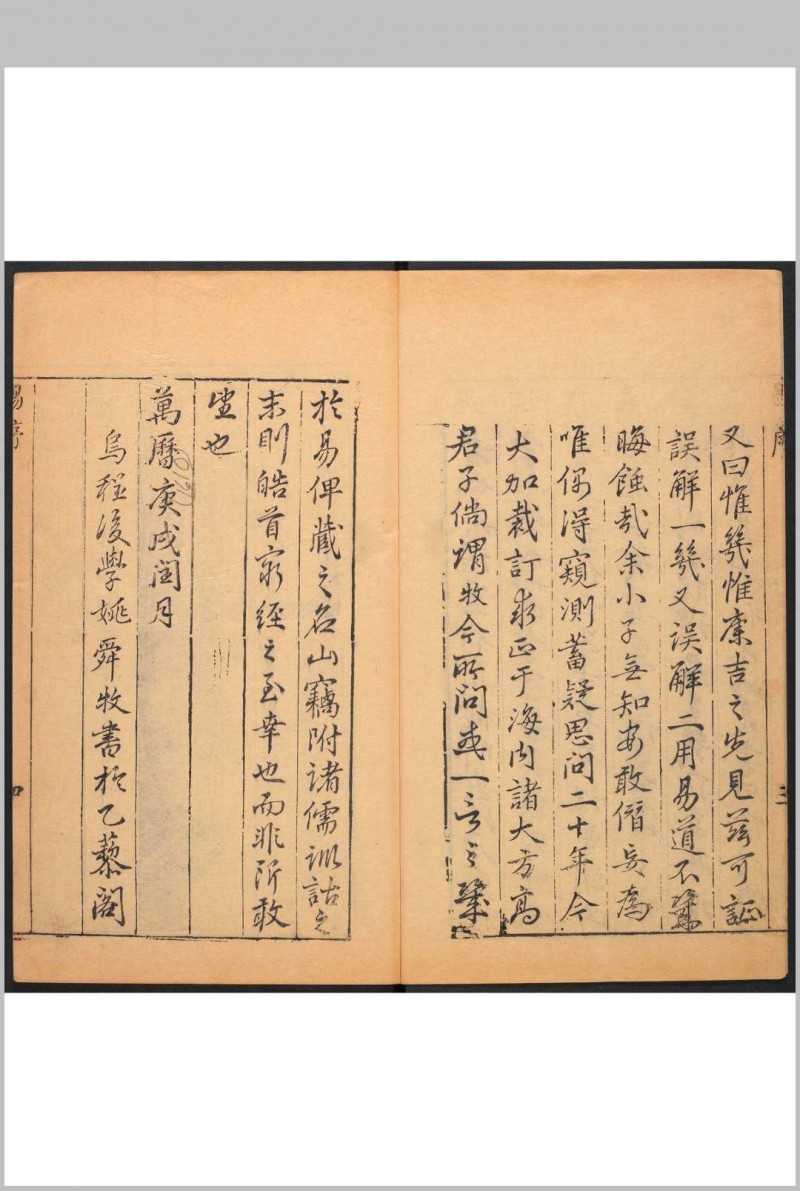 序 三
又曰惟幾惟康吉之先見茲可
誤解一幾又誤解二用易道不幾
晦蝕哉余小子無知安敢僭妄為
唯偶得窺測蓄疑思問二十年今
大加裁訂求正于海內諸大方高
君子倘謂牧今所問或一言之幾
於易俾藏之名山竊附諸儒訓詁之
末則皓首窮經之至幸也而非所敢
望也
萬曆庚戌閏月
烏程後學姚舜牧書於乙藜閣
易序 四